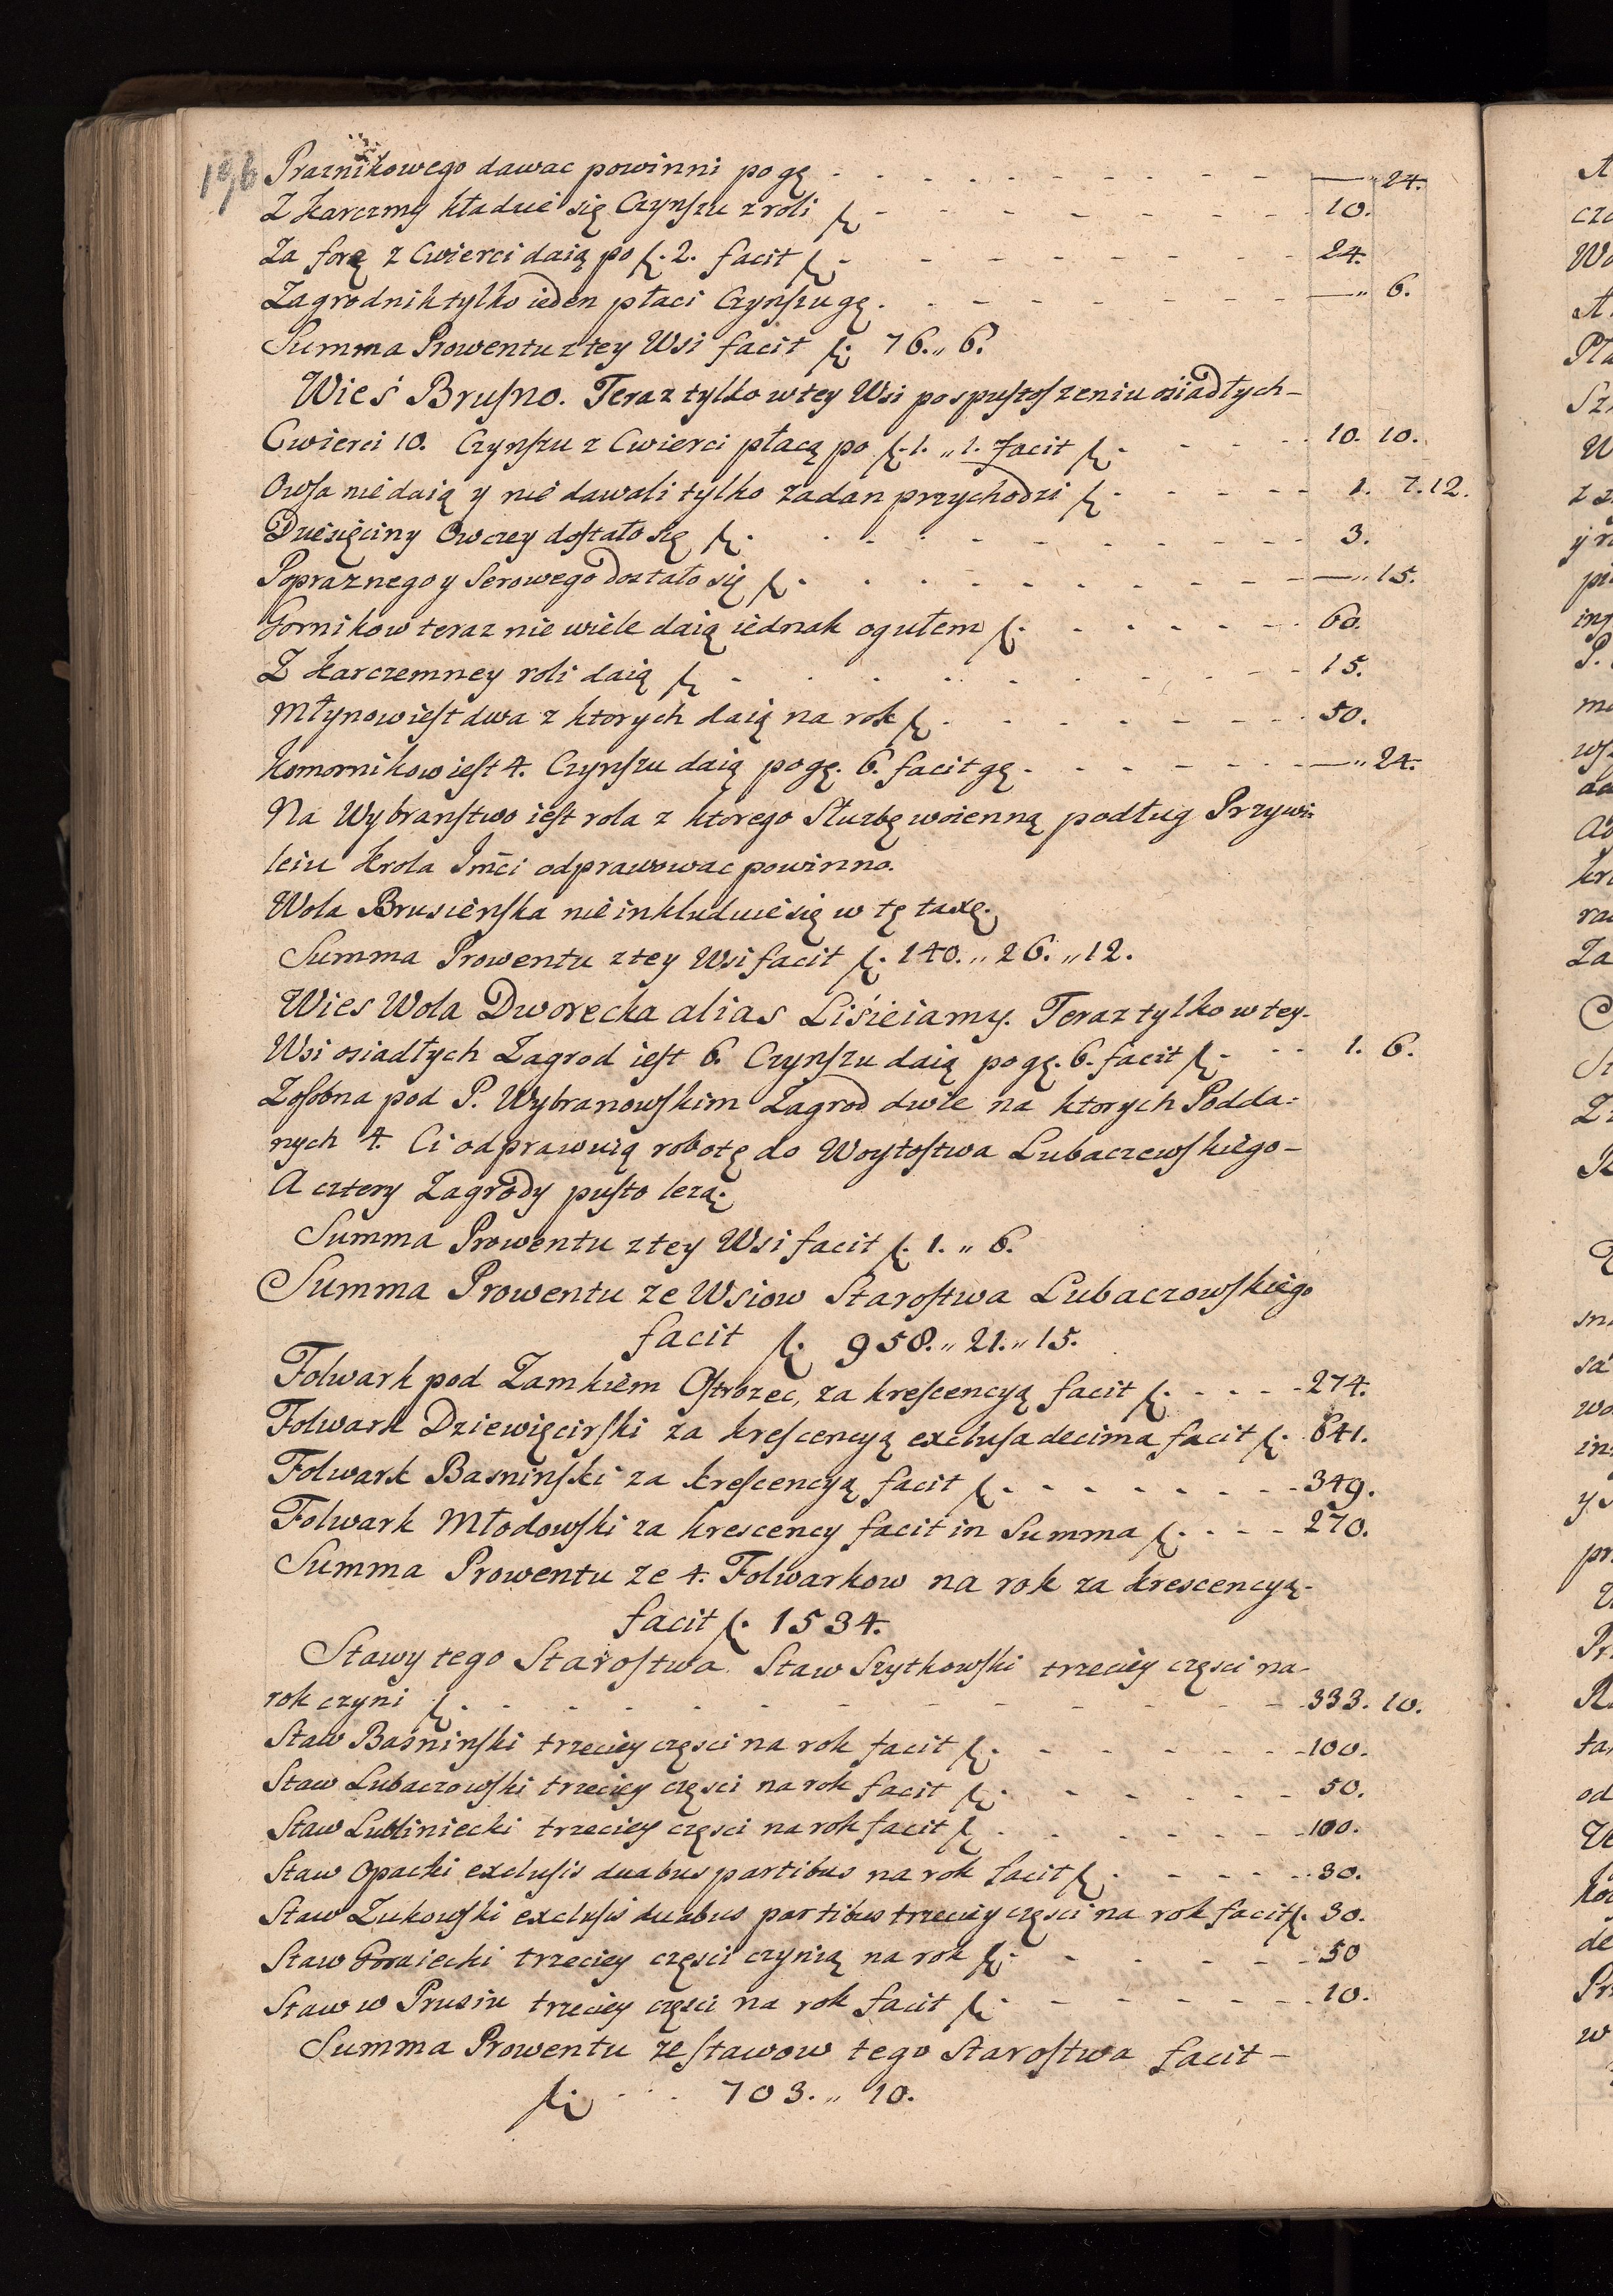 196 Praznikowego dawac powinni po gę - - - - - - - - - - — „ 24.
Z Karczmy kładzie się Czynszu z roli f. - - - - - - - - 10.
Za forę z Cwierci daią po f. 2. facit f. - - - - - - - - 24.
Zagrodnik tylko ieden płaci Czynszu gę. - - - - - - - — „ 6.
Summa Prowentu z tey Wsi facit f. 76. „ 6.
Wieś Brusno. Teraz tylko w tey Wsi po spustoszeniu osiadłych -
Cwierci 10. Czynszu z Cwierci płacą po f. 1. „ 1. facit f. - - - - 10. 10.
Owsa nie daią y nie dawali tylko zadan przychodzi f. - - - - - 1. 7. 12.
Dziesięciny Owczey dostało się f. - - - - - - - - - - 3.
Popraznego y Serowego dostało się f. - - - - - - - - - — „ 15.
Gornikow teraz nie wiele daią iednak ogułem f. - - - - - - 60.
Z Karczemney roli daią f. - - - - - - - - - - 15.
Młynow iest dwa z ktorych daią na rok f. - - - - - - - 50.
Komornikow iest 4. Czynszu daią po gę. 6. facit gę - - - - - - — „ 24.
Na Wybranstwo iest rola z ktorego Służbę woienną podług Przywi-
leiu Krola Jmci odprawowac powinno.
Wola Brusieńska nie inkluduie się w tę taxę.
Summa Prowentu z tey Wsi facit f. 140. „ 26. „ 12.
Wies Wola Dworecka alias Liśieiamy. Teraz tylko w tey -
Wsi osiadłych Zagrod iest 6. Czynszu daią po gę. 6. facit f. - - - 1. 6.
Zosobna pod P. Wybranowskim Zagrod dwie na ktorych Podda-
nych 4. Ci odprawuią robotę do Woytostwa Lubaczewskiego -
A cztery Zagrody pusto leżą.
Summa Prowentu z tey Wsi facit f. 1. „ 6.
Summa Prowentu ze Wsiow Starostwa Lubaczowskiego
facit f. 958. „ 21. „ 15.
Folwark pod Zamkiem Ostrozec, za krescencyą facit f. - - - - 274.
Folwark Dziewięcirski za krescencyą exclusa decima facit f. 641.
Folwark Basninski za krescencyą facit f. - - - - - - - - 349.
Folwark Młodowski za krescency facit in Summa f. - - - - 270.
Summa Prowentu ze 4. Folwarkow na rok za krescencyą -
facit f. 1534.
Stawy tego Starostwa. Staw Szytkowski trzeciey częsci na -
rok czyni f. - - - - - - - - - - - - - 333. 10.
Staw Baśninski trzeciey częsci na rok facit f. - - - - - - 100.
Staw Lubaczowski trzeciey częsci na rok facit f. - - - - - - 50.
Staw Lubliniecki trzeciey częsci na rok facit f. - - - - - - 100.
Staw Opacki exclusis duabus partibus na rok facit f. - - - - 30.
Staw Zukowski exclusis duabus partibus trzeciey częsci na rok facit f. 30.
Staw Goraiecki trzeciey częsci czynią na rok f. - - - - - 50
Staw w Prusiu trzeciey częsci na rok facit f. - - - - - - 10.
Summa Prowentu ze stawow tego Starostwa facit -
f. - - - 703. „ 10.